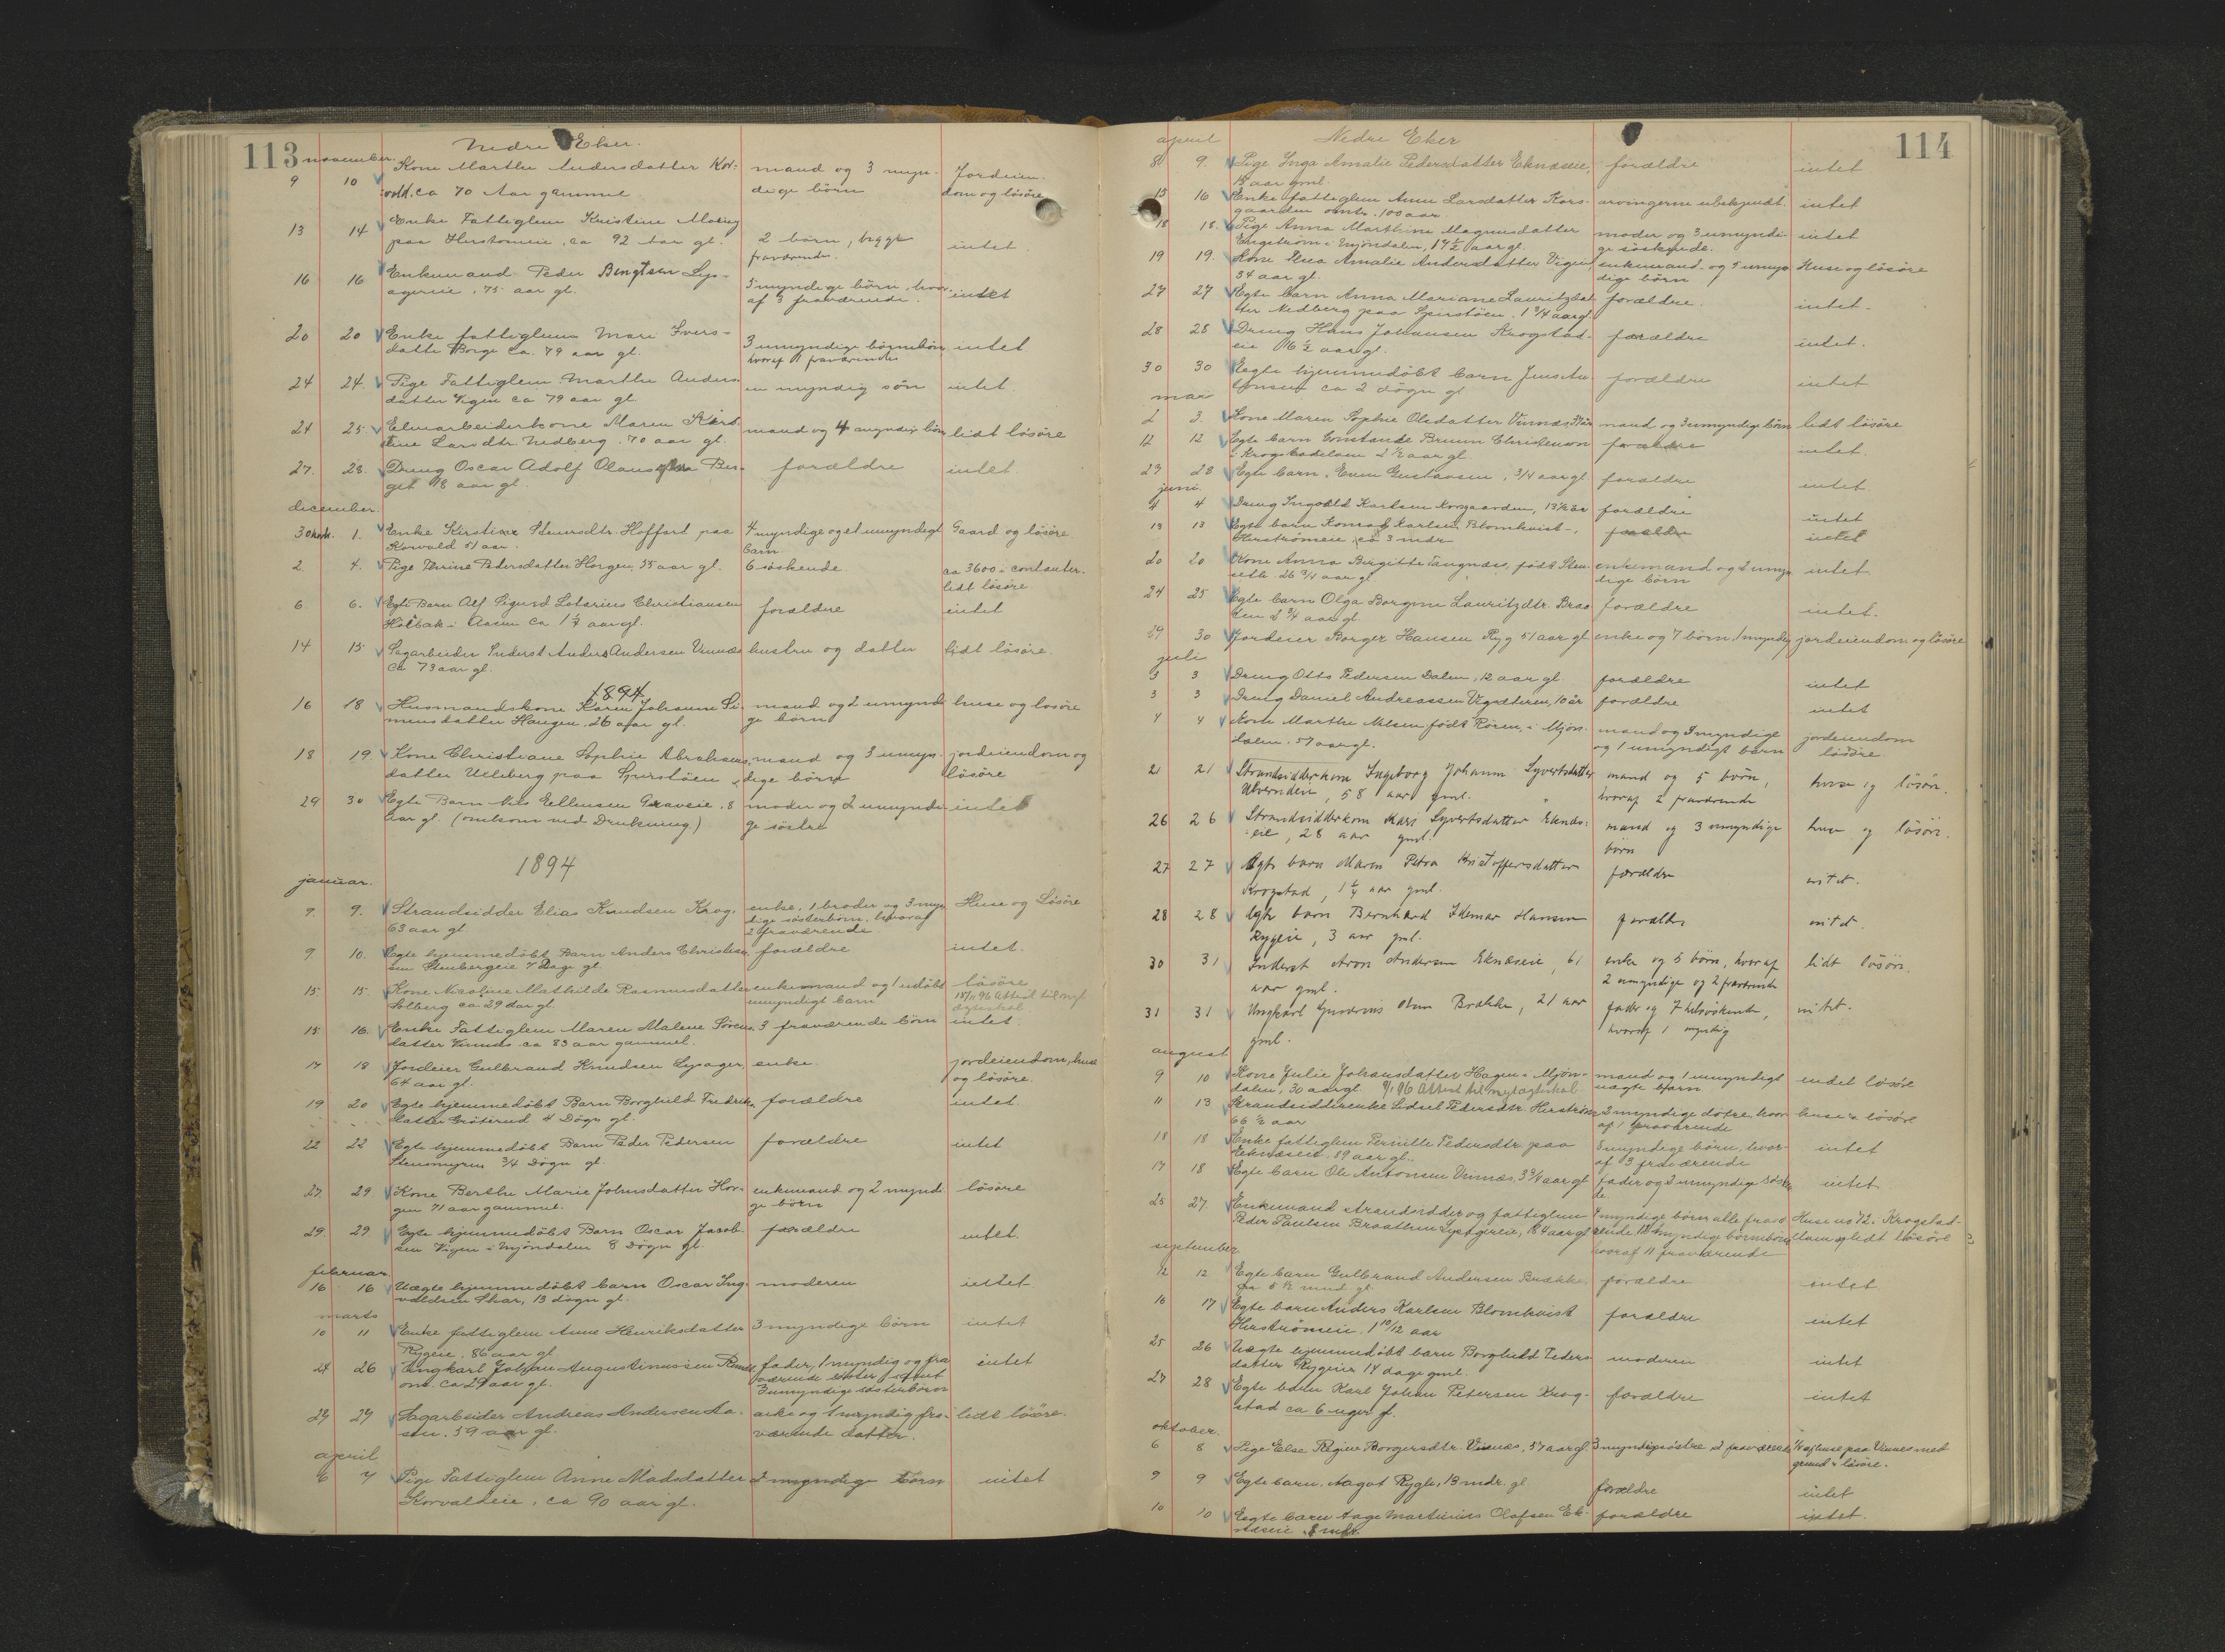 113
Nedre Eker.
november.
9 10 Kone Marthe Andersdatter Kor- mand og 3 myn- Jordeien-
vold. ca 70 Aar gammel dige börn dom og lösöre
13 14 Enke Fattiglem Kristine
paa ca 92 Aar gl. 2 börn, begge intet
fraværende.
16 16 Enkemand Peder Bengtsen Lys-
agereie, 75 aar gl. 5 myndige börn, hvor-
af 3 fraværende. intet
20 20 Enke fattiglem Mari Ivers-
datter Borge ca. 79 aar gl. 3 umyndige börnebörn intet
hvoraf 1 fraværende
24 24. Pige Fattiglem Marthe Anders- en myndig sön intet.
datter Vigen ca 79 aar gl.
24 25. Kirs-
tine Larsdtr. Nedberg. 70 aar gl. mand og 4 myndige börn lidt lösöre
27. 28. Dreng Oscar Adolf Ber- forældre intet.
get 8 aar gl.
december.
30 novb. 1. Enke Kirstine Steensdtr. Hoffart paa 4 myndige og et umyndigt Gaard og lösöre
Korvald 51 aar. barn
2. 4. Pige Thrine Pedersdatter Horgen, 55 aar gl. 6 söskende ca 3600 i contanter.
lidt lösöre
6 6. Egte Barn Alf Sigurd Lotarius Christiansen forældre intet
Holbak i Aasen ca 1 1/4 aar gl.
14 15 Sagarbeider Inderst Anders Andersen Vinnæs hustru og datter lidt lösöre.
ca 73 aar gl.
1894
16 18 Husmandskone Karen Johanne Si- mand og 2 umyndi- huse og lösöre
mensdatter Haugen, 26 aar gl. ge börn
18 19. Kone Christiane Sophie Abrahams- mand og 3 umyn- jordeiendom og
datter Ulleberg paa Spirstöen dige börn lösöre
29 30 Egte Barn Nils Ellensen Graveie. 8 moder og 2 umyndi- intet
Aar gl. (omkom ved Drukning) ge söstre
1894
januar.
7. 9. Strandsidder Elias Knudsen Krog. enke, 1 broder og 3 myn- Huse og Lösöre
63 aar gl. dige sösterbörn, hvoraf
2 fraværende
9 10. Egte hjemmedöbt Barn Anders Christian- forældre intet.
sen Stenbergeie 7 Dage gl.
15. 15. Kone Nicoline Mathilde Rasmusdatter enkemand og 1 udöbt lösöre
Solberg ca 29 Aar gl. umyndigt barn 18/11 96 Attest til nyt
ægteskab
15 16. Enke Fattiglem Maren Malene Sörens- 3 fraværende börn intet
datter Vinnæs ca 83 aar gammel.
17 18 Jordeier Gulbrand Knudsen Lysager, enke. jordeiendom, huse
64 aar gl. og lösöre.
19 20 Egte hjemmedöbt Barn Borghild Fredriks- forældre intet.
datter Gröterud 4 Dögn gl.
22 22 Egte hjemmedöbt Barn Peder Pedersen forældre intet
Stensmyren 3/4 Dögn gl.
27. 29 Kone Berthe Marie Johnsdatter Hor- enkemand og 2 myndi- lösöre
gen 71 aar gammel. ge börn
29. 29 Egte hjemmedöbt Barn Oscar Jacob- forældre intet.
sen Vigen i Mjöndalen 8 Dögn gl.
februar
16 16 Uægte hjemmedöbt barn Oscar Ing- moderen intet
valdsen Skar, 13 dögn gl.
marts
10 11 Enke fattiglem Anne Henriksdatter 3 myndige börn intet
Rygeie, 86 aar gl
24 26 Ungkarl Johan Augustinussen fader, 1 myndig og fra- intet
ca 29 aar gl. værende söster samt
3 umyndige sösterbörn
24 27 Sagarbeider Andreas Andersen Aa- enke og 1 myndig fra- lidt lösöre.
sen. 59 aar gl. værende datter.
april
6 7 Pige Fattiglem Anne Madsdatter 2 myndige börn intet
Korvaldeie, ca 90 aar gl.
114
Nedre Eker
april
8 9. Pige Inga Amalie Pedersdatter Eknæseie, forældre intet
15 aar gml.
15 16 Enke fattiglem Anne Larsdatter Kors- arvingerne ubekjendt. intet
gaarden omtr. 100 aar
18 18. Pige Anna Marthine Magnusdatter moder og 3 umyndi- intet
Engström i Mjöndalen, 17 1/2 aar gl. ge söskende.
19 19. Kone Elna Amalie Andersdatter Vigen, enkemand og 5 umyn- Huse og lösöre
34 aar gl dige börn
27 27 Egte barn Anna Mariane Lauritzdat- forældre. intet.
ter Nedberg paa Spirstöen. 1 3/4 aar gl.
28 28 Dreng Hans Johansen Krogstad- forældre intet.
eie 6 1/2 aar gl.
30 30 Egte hjemmedöbt barn Jens An- forældre intet
tonsen ca 2 dögn gl
mai
2 3. Kone Maren Sophie Olsdatter Vinnæs mand og 3 umyndige börn lidt lösöre
12 12 Egte barn Constance Bruun Christensen forældre intet.
i Krogstadelven 2 1/2 aar gl.
23 28 Egte barn. Enen Gustavsen, 3/4 aar gl. forældre intet
juni
4 4 Dreng Ingvald Karlsen Korsgaarden, 13 1/2 aar forældre intet
13 13 Egte barn Konrad Karlsen Blomkvist-, forældre intet
Herströmeie ca 3 mdr
20 20 Kone Anna Birgitte Tangnæs, födt Sten- enkemand og 2 umyn- intet
seth 26 3/4 aar gl dige börn
24 25 Egte barn Olga Borgine Lauritzdtr. Braa- forældre intet.
ten 2 3/4 aar gl
29 30 Jordeier Borger Hansen Ryg 51 aar gl. enke og 7 börn, 1 myndig jordeiendom og lösöre
juli
3 3 Dreng Otto Pedersen Dalen, 12 aar gl. forældre intet
3 3 Dreng Daniel Andreassen Vegsteren, 10 år forældre intet
4 4 Kone Marthe Nilsen födt Rören, i Mjön- mand og 3 myndige jordeiendom
dalen, 57 aar gl. og 1 umyndigt barn lösöre
21 21 Strandsidderkone Ingeborg Johanne Syvertsdatter mand og 5 börn, huse og lösöre.
Ulverudeie, 58 aar gml. hvoraf 2 fraværende
26 26 Strandsidderkone Kari Syvertsdatter Eknæs- mand og 3 umyndige huse og lösöre.
eie, 28 aar gml. börn
27 27 Egte barn Maren Petra Kristoffersdatter forældre intet.
Krogstad, 1 1/4 aar gml.
28 28 Egte barn Bernhard Hansen forældre intet.
Rygeie, 3 aar gml.
30 31 Inderst Aron Andersen Eknæseie, 61 enke og 5 börn, hvoraf lidt lösöre.
aar gml. 2 umyndige og 2 fraværende
31 31 Ungkarl Brække, 21 aar fader og 7 helsöskende, intet.
gml. hvoraf 1 myndig
august
9 10 Kone Julie Johansdatter Hagen i Mjön- mand og 1 umyndigt endel lösöre
dalen, 30 aar gl. 9/1 96 Attest til nyt ægteskab uægte barn.
11 13 Strandsidderenke Sidsel Pedersdtr. Herström 2 myndige dötre, hvor- huse & lösöre
66 1/2 aar af 1 fraværende
18 18 Enke fattiglem Pernille Pedersdtr. paa 5 myndige börn, hvor- intet
Eknæseie. 89 aar gl. af 3 fraværende
17 18 Egte barn Ole Antonsen Vinnæs, 3 3/4 aar gl fader og 2 umyndige söskn- intet
de
25 27. Enkemand strandsidder og fattiglem 4 myndige börn alle fravæ- Huse no 72 i Krogstad-
Peder Paulsen Braathen Lysagereie, 84 aar gl. rende, 12 myndige börnebörn elven og lidt lösöre
hvoraf 11 fraværende
september
12 12 Egte barn Gulbrand Andersen Brække, forældre intet
ca 5 1/2 mnd. gl.
16 17 Egte barn Anders Karlsen Blomkvist forældre intet
Herströmeie. 1 10/12 aar
25 26 Uægte hjemmedöbt barn Borghild Peders- moderen intet
datter Rygeie 14 dage gml.
27 28 Egte barn Karl Johan Petersen Krog- forældre intet
stad ca 6 uger gl.
oktober.
6 8 Pige Else Regine Borgersdtr. Vinnæs, 57 aar gl. 3 myndige söstre 2 fraværende 1/4 af huse paa Vinnes med
grund & lösöre.
9 9 Egte barn. Aagot Rygh, 13 mdr. gl. forældre intet
10 10 Egte barn Aage Martinius Olafsen Ek- forældre intet.
næseie, 8 mdr.